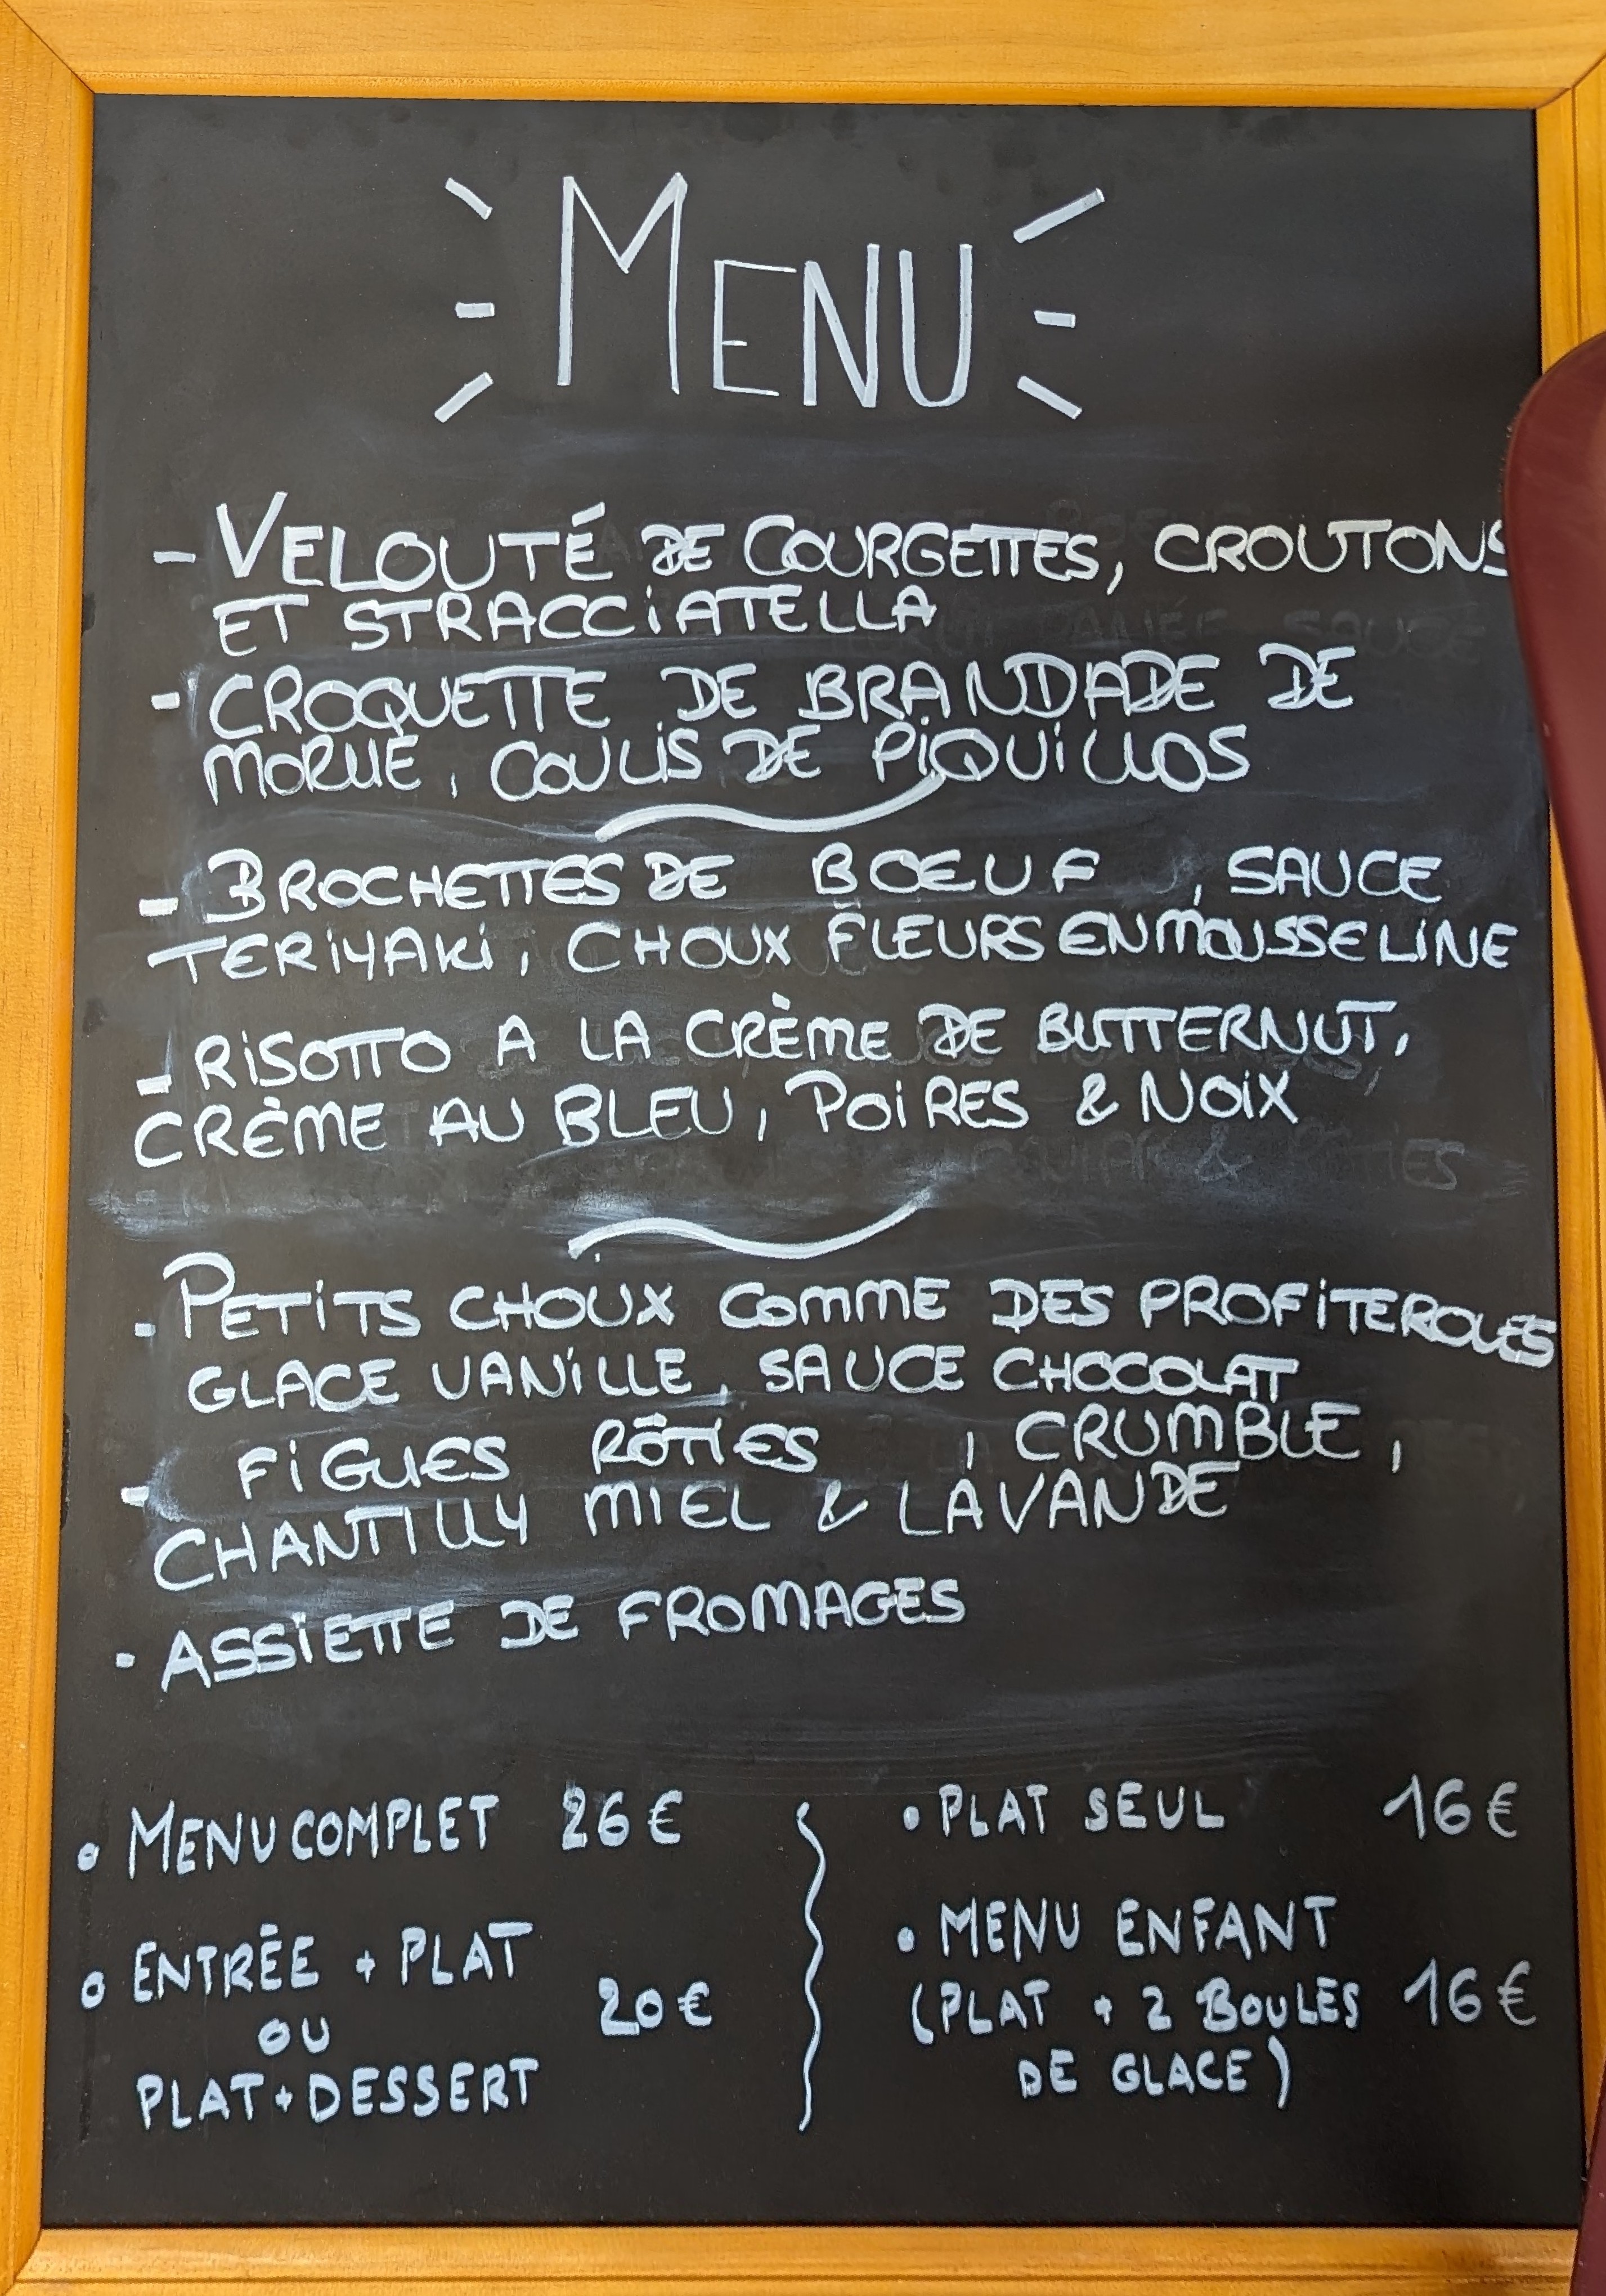 MENU
- VELOUTÉ DE COURGETTES, CROUTONS
ET STRACCIATELLA
- CROQUETTE DE BRANDADE DE
MORUE, COULIS DE PIQUILLOS
- BROCHETTES DE BOEUF, SAUCE
TERIYAKI, CHOUX FLEURS EN MOUSSELINE
- RISOTTO A LA CRÈME DE BUTTERNUT,
CRÈME AU BLEU, POIRES & NOIX
- PETITS CHOUX COMME DES PROFITEROLES
GLACE VANILLE, SAUCE CHOCOLAT
- FIGUES RÔTIES, CRUMBLE,
CHANTILLY MIEL & LAVANDE
- ASSIETTE DE FROMAGES
• MENU COMPLET 26€
• ENTRÉE + PLAT
OU 20€
PLAT + DESSERT
• PLAT SEUL 16€
• MENU ENFANT
(PLAT + 2 BOULES 16€
DE GLACE)